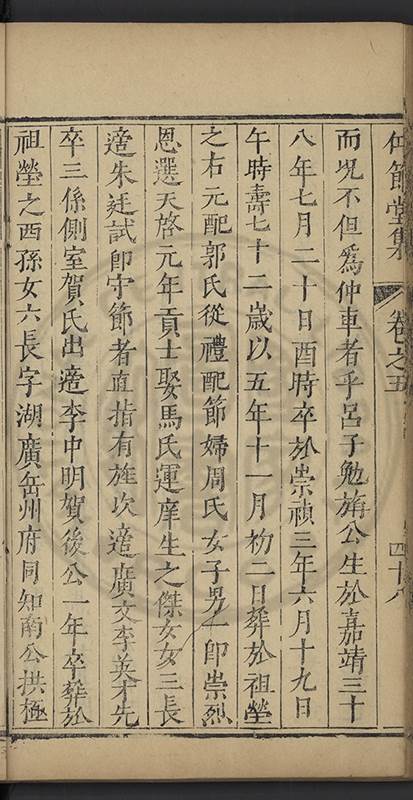 仰節堂集 卷之五 四十八
而况不但爲仲車者乎呂子勉旃公生於嘉靖三十
八年七月二十日酉時卒於崇禎三年六月十九日
午時壽七十二歲以五年十一月初二日葬於祖塋
之右元配郭氏從禮配節婦周氏女子男一即崇烈
恩選天啓元年貢士娶馬氏運庠生之傑女女三長
適朱廷試即守節者直指有旌次適廣文李英才先
卒三係側室賀氏出適李中明賀後公一年卒葬於
祖塋之西孫女六長字湖廣岳州府同知南公拱極